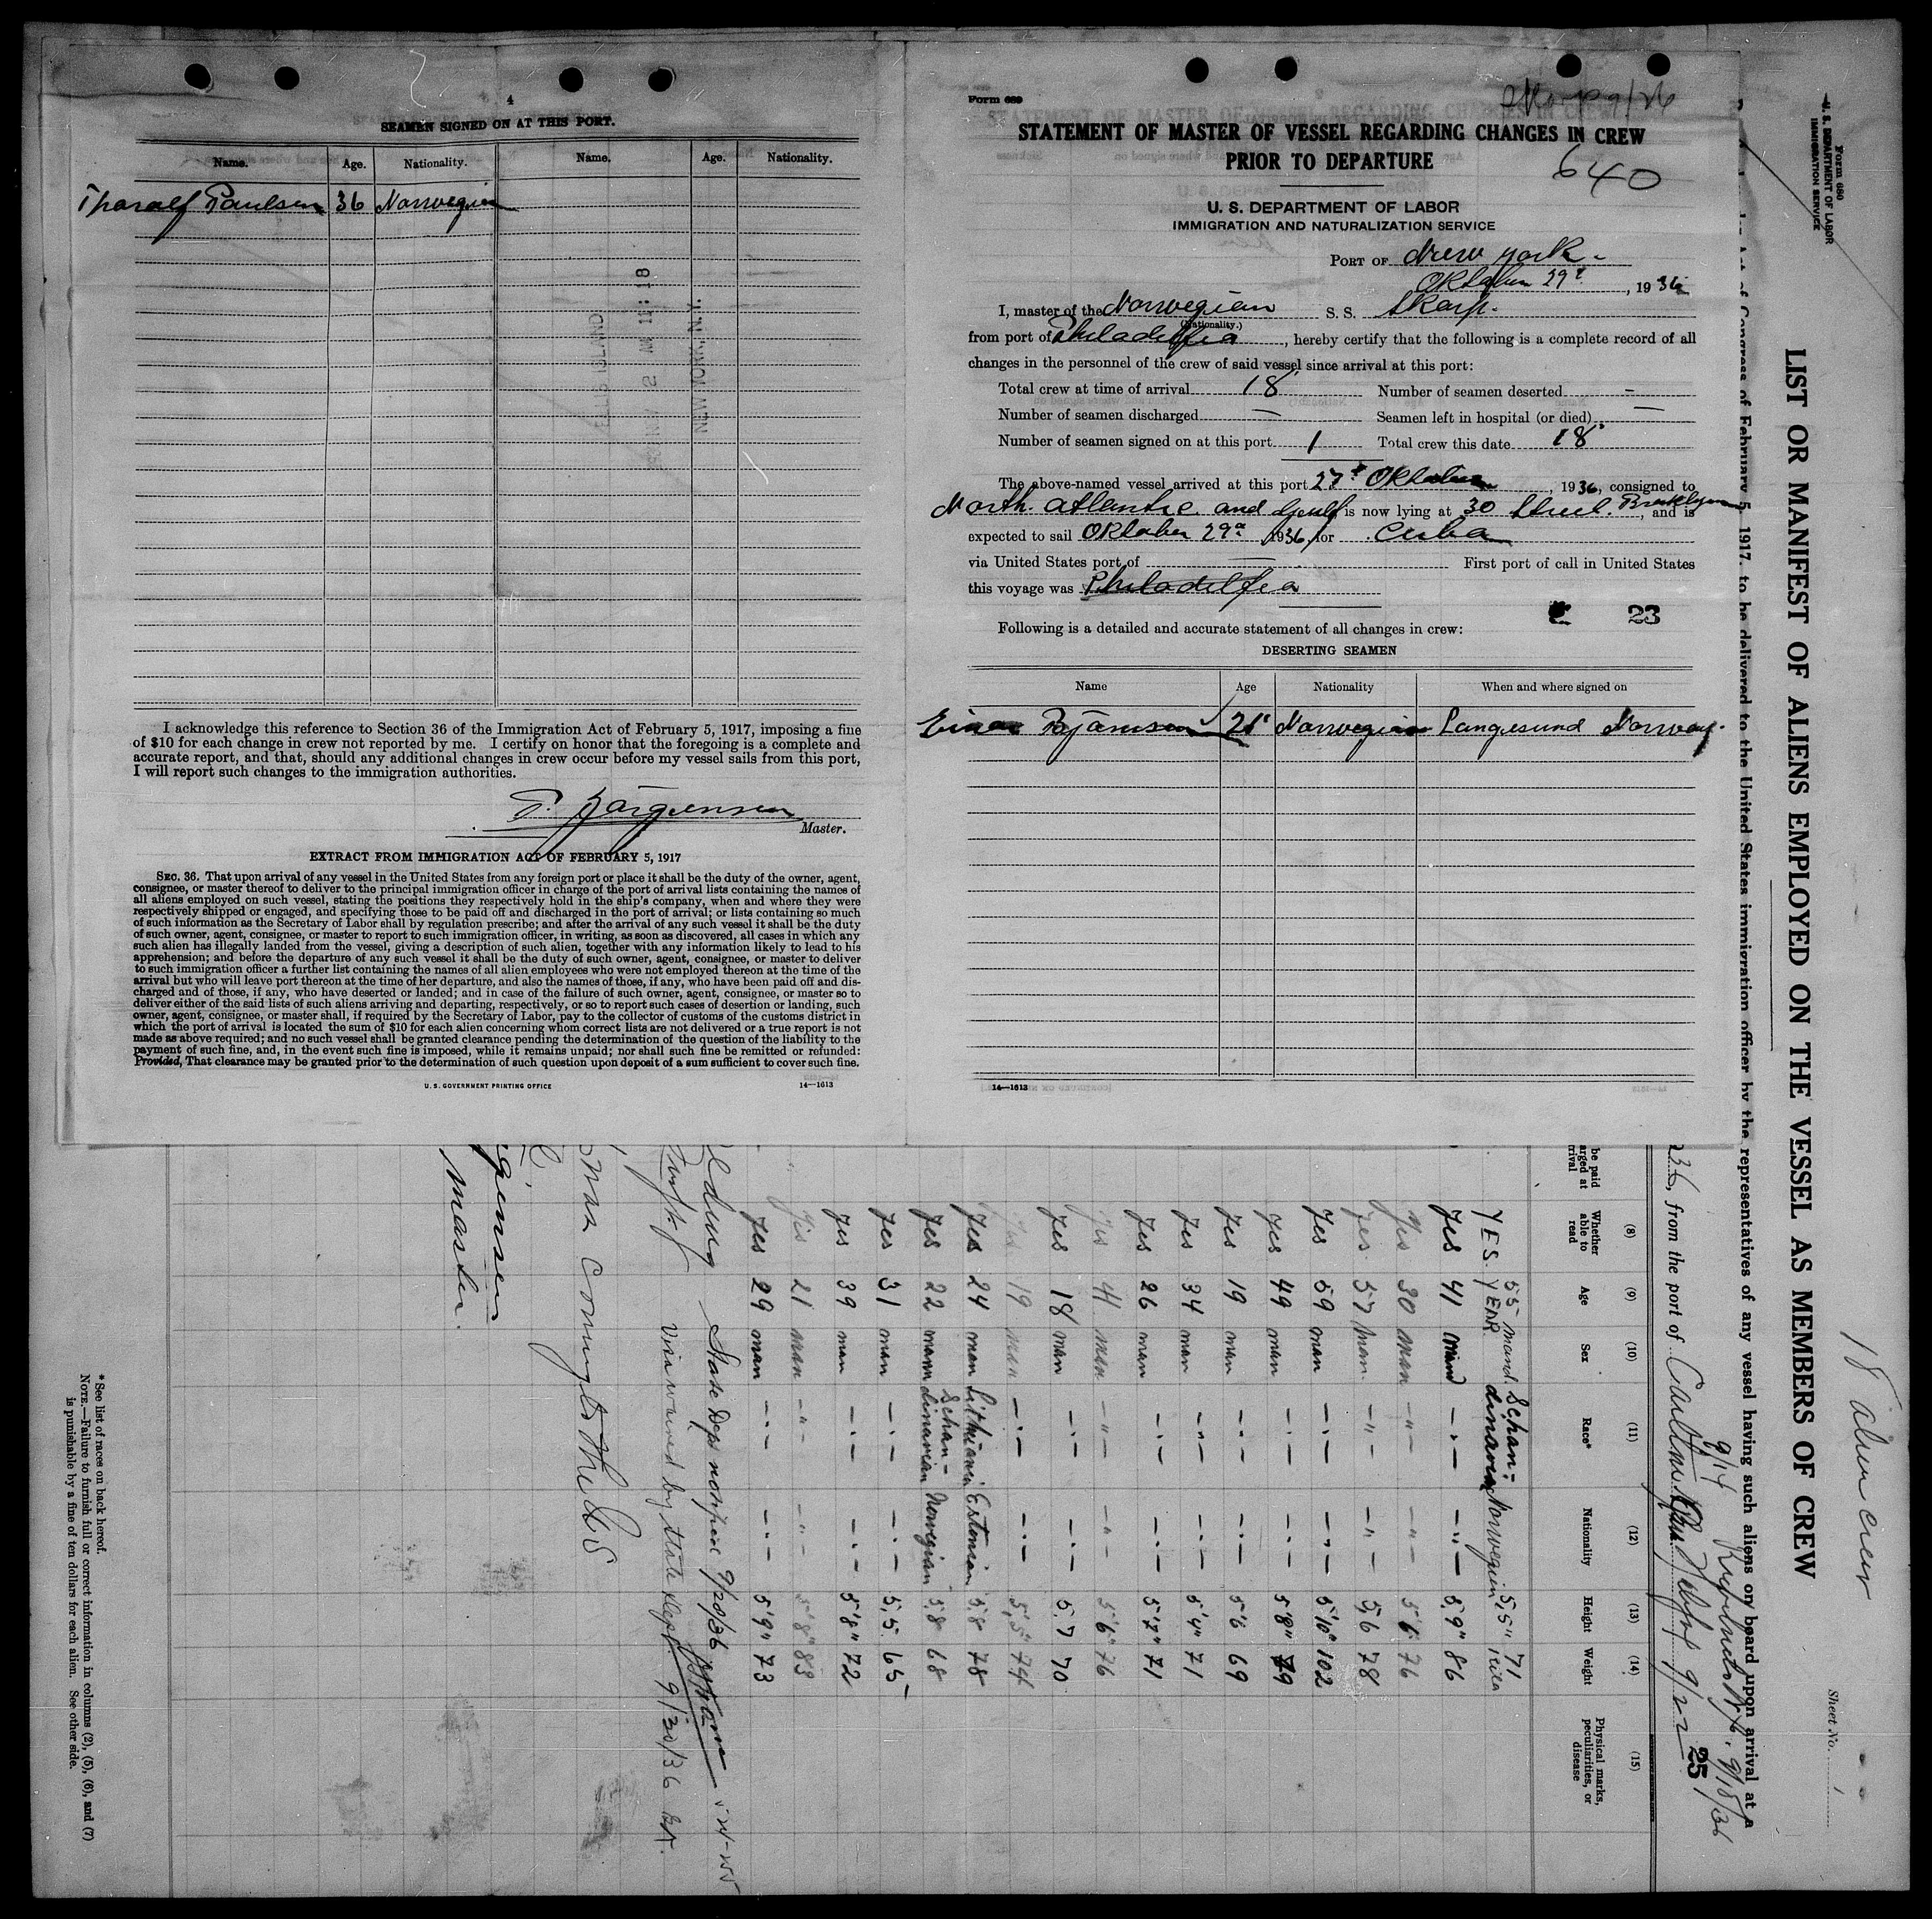 4
SEAMEN SIGNED ON AT THIS PORT.
Name. Age. Nationality. Name. Age. Nationality.
Tharalf Paulsen 36 Norwegian
ELLIS ISLAND
11:18
NEW YORK, N.Y.
I acknowledge this reference to Section 36 of the Immigration Act of February 5, 1917, imposing a fine
of $10 for each change in crew not reported by me. I certify on honor that the foregoing is a complete and
accurate report, and that, should any additional changes in crew occur before my vessel sails from this port,
I will report such changes to the immigration authorities.
Jørgensen
Master.
EXTRACT FROM IMMIGRATION ACT OF FEBRUARY 5, 1917
SEC. 36. That upon arrival of any vessel in the United States from any foreign port or place it shall be the duty of the owner, agent,
consignee, or master thereof to deliver to the principal immigration officer in charge of the port of arrival lists containing the names of
all aliens employed on such vessel, stating the positions they respectively hold in the ship's company, when and where they were
respectively shipped or engaged, and specifying those to be paid off and discharged in the port of arrival; or lists containing so much
of such information as the Secretary of Labor shall by regulation prescribe; and after the arrival of any such vessel it shall be the duty
of such owner, agent, consignee, or master to report to such immigration officer, in writing, as soon as discovered, all cases in which any
such alien has illegally landed from the vessel, giving a description of such alien, together with any information likely to lead to his
apprehension; and before the departure of any such vessel it shall be the duty of such owner, agent, consignee, or master to deliver
to such immigration officer a further list containing the names of all alien employees who were not employed thereon at the time of the
arrival but who will leave port thereon at the time of her departure, and also the names of those, if any, who have been paid off and dis-
charged and of those, if any, who have deserted or landed; and in case of the failure of such owner, agent, consignee, or master so to
deliver either of the said lists of such aliens arriving and departing, respectively, or so to report such cases of desertion or landing, such
owner, agent, consignee, or master shall, if required by the Secretary of Labor, pay to the collector of customs of the customs district in
which the port of arrival is located the sum of $10 for each alien concerning whom correct lists are not delivered or a true report is not
made as above required; and no such vessel shall be granted clearance pending the determination of the question of the liability to the
payment of such fine, and, in the event such fine is imposed, while it remains unpaid; nor shall such fine be remitted or refunded:
Provided, That clearance may be granted prior to the determination of such question upon deposit of a sum sufficient to cover such fine.
U. S. GOVERNMENT PRINTING OFFICE 14—1613
Form 689
STATEMENT OF MASTER OF VESSEL REGARDING CHANGES IN CREW
PRIOR TO DEPARTURE
640
U. S. DEPARTMENT OF LABOR
IMMIGRATION AND NATURALIZATION SERVICE
PORT OF New York
Oktober 29, 1936
I, master of the Norwegian S. S. Skarp.
(Nationality.)
from port of Philadelfia, hereby certify that the following is a complete record of all
changes in the personnel of the crew of said vessel since arrival at this port:
Total crew at time of arrival 18 Number of seamen deserted —
Number of seamen discharged — Seamen left in hospital (or died) —
Number of seamen signed on at this port 1 Total crew this date 18
The above-named vessel arrived at this port 27 Oktober, 1936, consigned to
North. Atlantic and Gulf is now lying at 30 Street. Brooklyn, and is
expected to sail Oktober 29 1936, for Cuba
via United States port of — First port of call in United States
this voyage was Philadelfia
23
Following is a detailed and accurate statement of all changes in crew:
DESERTING SEAMEN
Name Age Nationality When and where signed on
Einar Bjørnsen 21 Norwegian Langesund Norway.
14—1613
Form 680
U. S. DEPARTMENT OF LABOR
IMMIGRATION SERVICE
LIST OR MANIFEST OF ALIENS EMPLOYED ON THE VESSEL AS MEMBERS OF CREW
18 alien crew
Sheet No. 1
of Congress of February 5, 1917, to be delivered to the United States immigration officer by the representatives of any vessel having such aliens on board upon arrival at a
36, from the port of
9/14
9/18/36
9/22
25
(8) (9) (10) (11) (12) (13) (14) (15)
Whether able to read Age Sex Race* Nationality Height Weight Physical marks, peculiarities, or disease
YES. 55 YEAR. mand. Schan-dinavien Norwegien 5,5" 71 kilea
yes 41 mand —"— —"— 5,9" 86
yes 30 man —"— —"— 5 6 76
yes 57 man —"— —"— 5,6 78
yes 59 man —"— —"— 5'10" 102
yes 49 man —"— —"— 5'8" 79
yes 19 man —"— —"— 5'6 69
yes 34 man —"— —"— 5'4" 71
yes 26 man —"— —"— 5'7" 71
yes 41 man —"— —"— 5'6" 76
yes 18 man —"— —"— 5.7 70
yes 19 man —"— —"— 5,5" 74
yes 24 man Lithuania Estonian 5.8 78
yes 22 mann Schan-dinavian Norwegian 5.8 68
yes 31 man —"— —"— 5,5 65
yes 39 man —"— —"— 5'8" 72
yes 21 man —"— —"— 5'8" 83
yes 29 man —"— —"— 5'9" 73
State Dept notified 9/28/36
Visa waived by State Dept. 9/30/36
Master.
* See list of races on back hereof.
NOTE.—Failure to furnish full or correct information in columns (2), (5), (6), and (7)
is punishable by a fine of ten dollars for each alien. See other side.